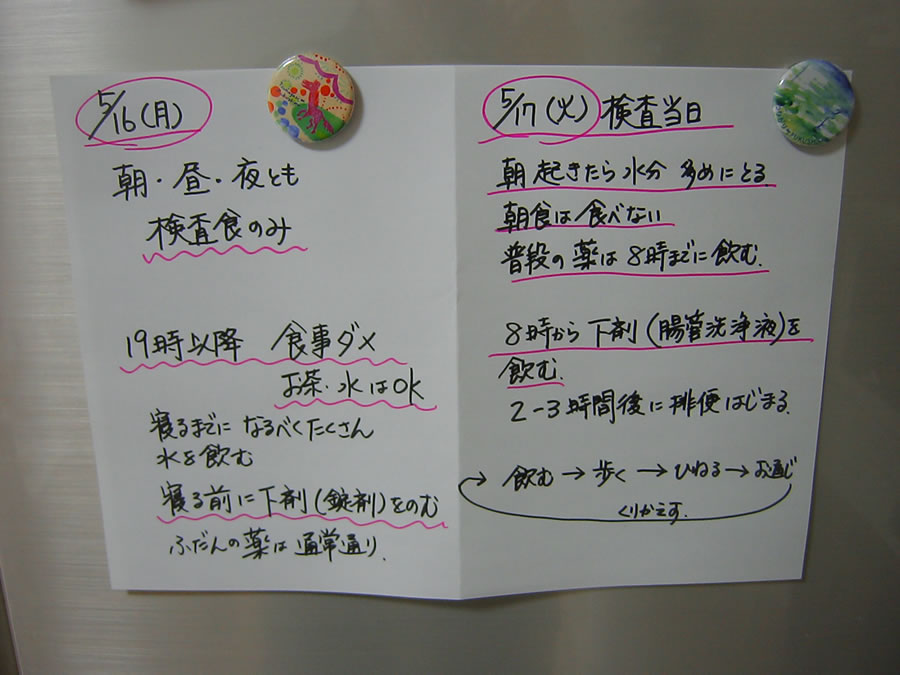 5/16(月)
朝・昼・夜とも
検査食のみ
19時以降 食事ダメ
お茶・水はOK
寝るまでに なるべくたくさん
水を飲む
寝る前に下剤(錠剤)をのむ
ふだんの薬は 通常通り.
5/17(火) 検査当日
朝 起きたら 水分 多めにとる.
朝食は 食べない
普段の 薬は 8時までに 飲む.
8時から 下剤(腸管洗浄液)を
飲む.
2-3時間後に 排便はじまる.
飲む→歩く→ひねる→お通じ
くりかえす.